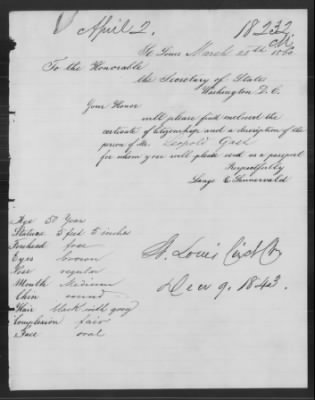 April 2.
18232
St Louis March 25th 1890
To the Honorable
the Secretary of State
Washington D. C.
Your Honor
will please find enclosed the
certicate of citizenship and a discription of the
person of Mr. Leopold Gast
for whom your will please send us a passport
Respectfully
Lange &
Age 50 Year
Statue 5 feet 5 inches
Forehead free
Eyes brown
Nose regular
Mouth Medium
Chin round
Hair black with grey
Complexion fair
Face oval
St. Louis
Dec 9. 1843.